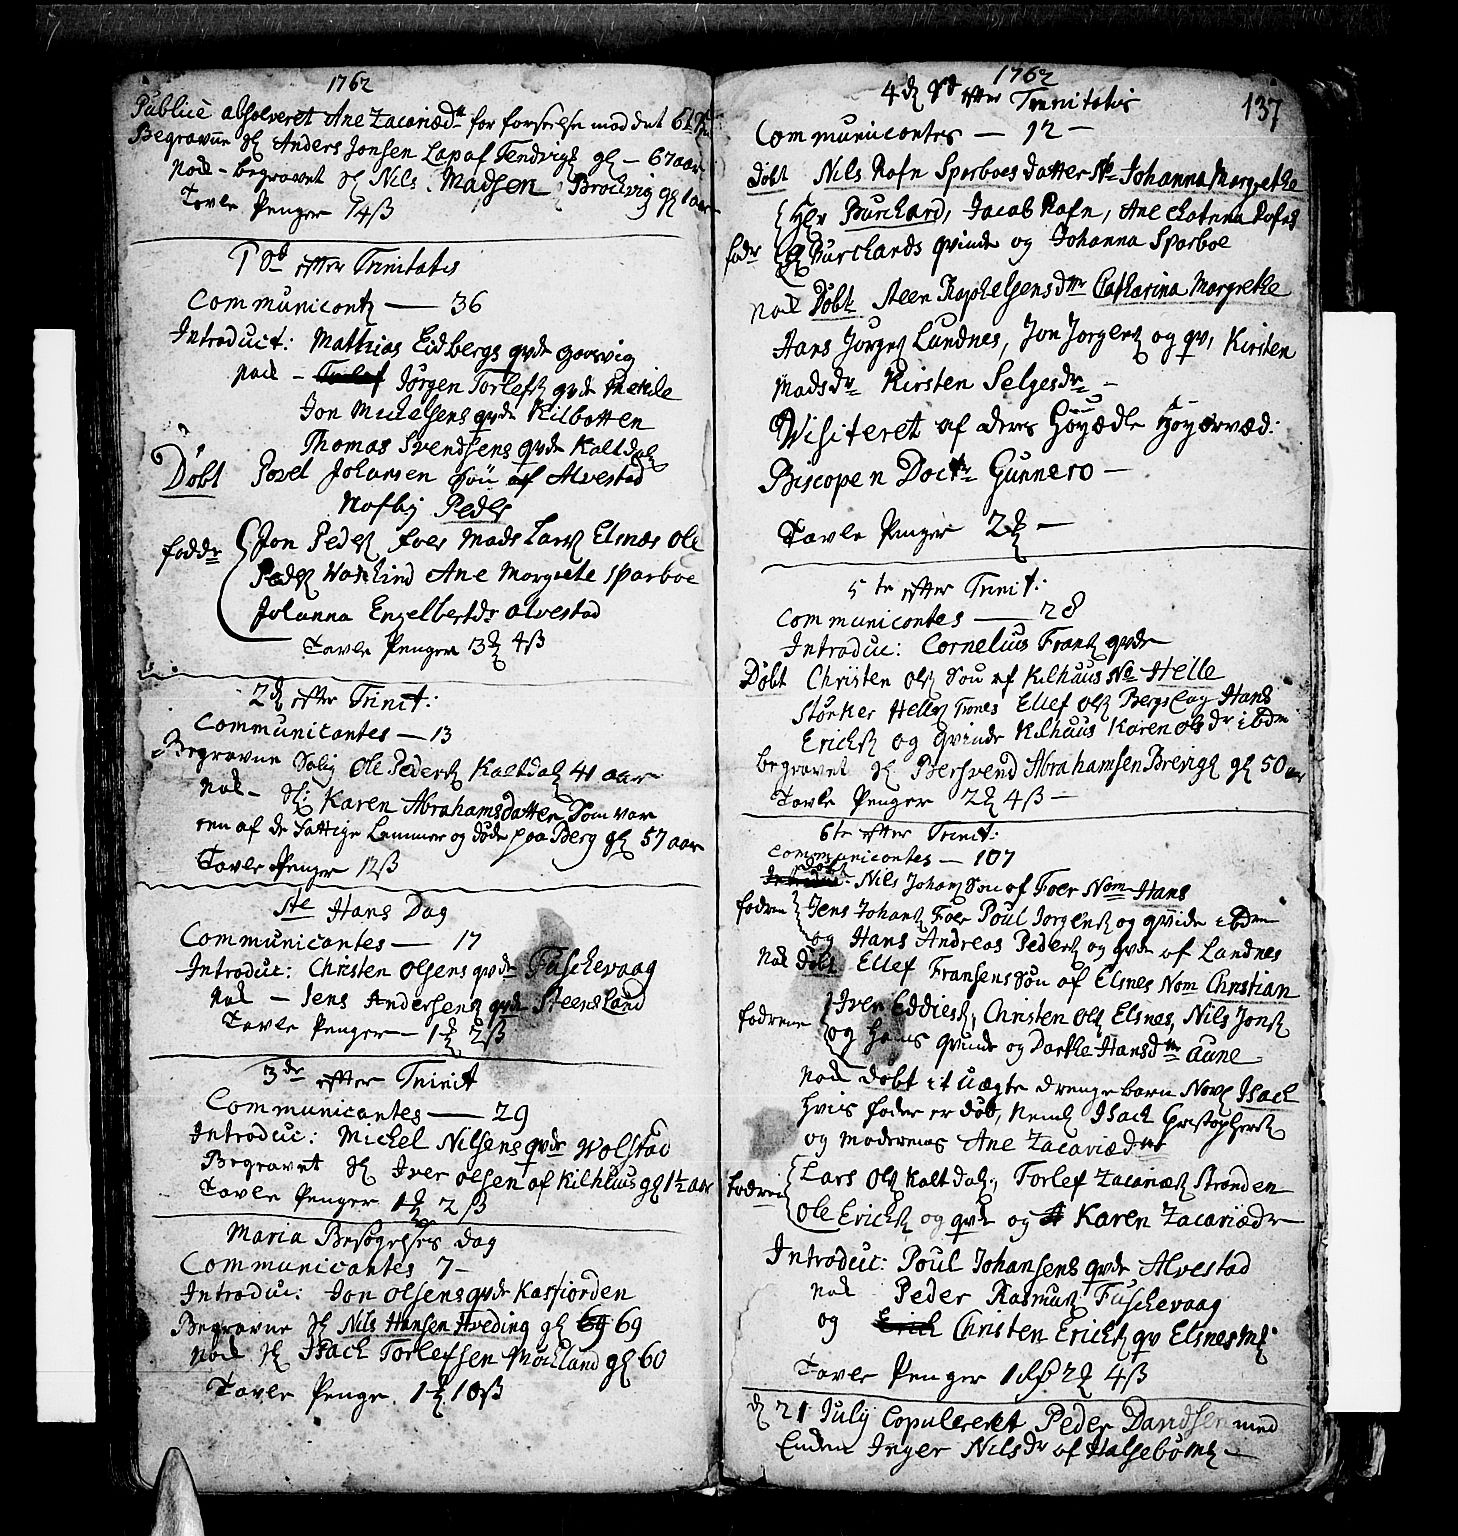 1762
Publicè absolveret Ane Zacariæd for forseelse mod det 6te
Begravne Sl Anders Jonsen Lap af Tendvig gl – 67 aar
Nok – begravet Sl Nils Madsen Brochvig gl 1 aar
Tavle Penger 14 ß
1 Sd efter Trinitatis
Communicont — 36
Introduct: Mathias Eidbergs qvde Gorsvig
Nok – Jørgen Torlefs qvde
Jon Mickelsens qvde Kilbotten
Thomas Svendsens qvde Kaltdal
Døbt Povel Johansen Søn af Alvestad
Nafhⁿ Peder
fadde Jon Peders Foer Mads Lars Elsnæs Ole
Peders Ane Morgrete Sparboe
Johanna Engelbertdr Alvestad
Tavle Penger 3 4 ß
2d efter Trinit:
Communicantes — 13
Begravne Salig Ole Peders Kaltdal 41 aar
Nok – Sl: Karen Abrahamsdatter Som var
een af de Fattige Lemmer og døde paa Berg gl 57 aar
Tavle Penger 12 ß
Ste Hans Dag
Communicantes — 17
Introduc: Christen Olsens qvde Fuschevaag
Nok – Jens Andersens qvde Steensland
Tavle Penger – 1 2 ß
3de efter Trinit
Communicantes — 29
Introduc: Mickel Nilsens qvde Wolstad
Begravet Sl Iver Olsen af Kilhuus gl 1½ aar
Tavle Penger 1 2 ß
Maria Besøgelses Dag
Communicantes 7 –
Introduc: Jon Olsens qvde Kasfiorden
Begravne Sl Nils Hansen Hveding gl 69 69
Nok Sl Isack Torlefsen Mockland gl 60
Tavle Penge 1 10 ß
1762
137
4d Sd efter Trinitatis
Communicantes — 12 –
Døbt Nils Rafn Sparboes Datter Nn Johanna Margrethe
Hr Burchard, Jacob Rafn, Ane Chatrina Rofns
fadr Burchards qvinde og Johanna Sparboe
Nok Døbt Steen Raphelsens dtr Catharina Margrethe
Hans Jørgs Lundnes, Jon Jørgens og qv, Kirsten
Madsdr Kirsten Selgesdr –
Visiteret af deres Høyædle Høyærværd:
Biscopen Doctr Gunnero –
Tavle Penger 2 —
5te efter Trinit:
Communicontes — 28
Introduc: Cornelius Frants qvde
Døbt Christen Ols Søn af Kilhuus Nn Helle
Størker Helles Ellef Ols Bergs Hans
Ericks og qvinde Kilhuus Karen Olsdr ibdm
begravet Sl Bersvend Abrahamsen Brevig gl 50 aar
Tavle Penger 2 4 ß –
6te efter Trinit:
Communicontes — 107
Døbt Nils Johans Søn af Foer Nom Hans
fadrene Jens Johans Foer Poul Jørgens og qvinde ibdm
og Hans Andreas Peders og qvde af Lundnes
Nok Døbt Ellef Fransens Søn af Elsnes Nom Christian
fadrene Iver Eddies, Christen Ols Elsnes, Nils Jons
og Hans qvinde og Dorthe Hansdtr Aune
Nok døbt it uægte drengebarn Navl Isach
hvis fader er død, Neml Isach Christophers
og Moderens Ane Zacariædtr
fadrene Lars Ols Kaltdal, Torlef Zacariæs Stranden
Ole Ericks og qvde og Karen Zacariædr
Introduc: Poul Johansens qvde Alvestad
Nok Peder Rasmus Fuschevaag
og Christen Ericks qv Elsnes
Tavle Penger 1 2 4 ß
d 21 July Copuleret Peder Davidsen med
Enken Inger Nilsdr af Halsebø